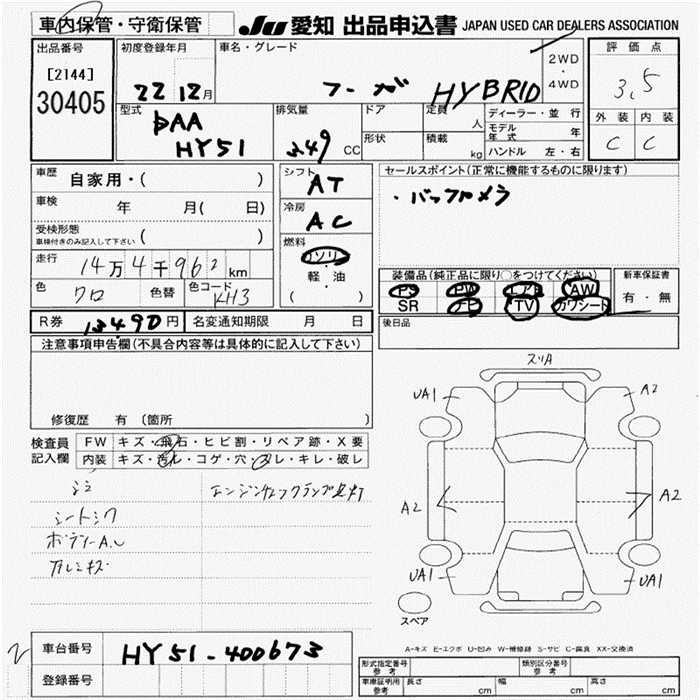 車内保管・守衛保管
JU 愛知 出品申込書 JAPAN USED CAR DEALERS ASSOCIATION
出品番号
[2144]
30405
初度登録年月
22 12月
車名・グレード
フーガ HYBRID
2WD
・
4WD
評価点
3.5
外装 内装
C C
型式
DAA
HY51
排気量
3.49 CC
ドア
形状
定員
人
積載
kg
ディーラー・並行
モデル年式 年
ハンドル 左・右
車歴
自家用・( )
車検
年 月( 日)
受検形態
車検付きのみ記入して下さい ( )
走行
14万4千962km
色
クロ
色替
色コード
KH3
シフト
AT
冷房
AC
燃料
ガソリン
軽・油
( )
セールスポイント(正常に機能するものに限ります)
・バックカメラ
装備品(純正品に限り○をつけてください)
PS PW エアB AW
SR ナビ TV カワシート
新車保証書
有・無
後日品
R券 13490円
名変通知期限 月 日
注意事項申告欄(不具合内容等は具体的に記入して下さい)
修復歴 有 〔箇所 〕
検査員
記入欄
FW キズ・飛石・ヒビ割・リペア跡・X要
内装 キズ・汚レ・コゲ・穴・スレ・キレ・破レ
エンジンチェックランプ点灯
シートシワ
ボデーA.U
アルミキズ
スリA
UA1
A2
A2
A2
UA1
UA1
スペア
A-キズ E-エクボ U-凹み W-補修跡 S-サビ C-腐食 XX-交換済
車台番号
HY51-400673
登録番号
形式指定番号
参考
類別区分番号
参考
車庫証明用
参考
長さ cm
幅 cm
高さ cm